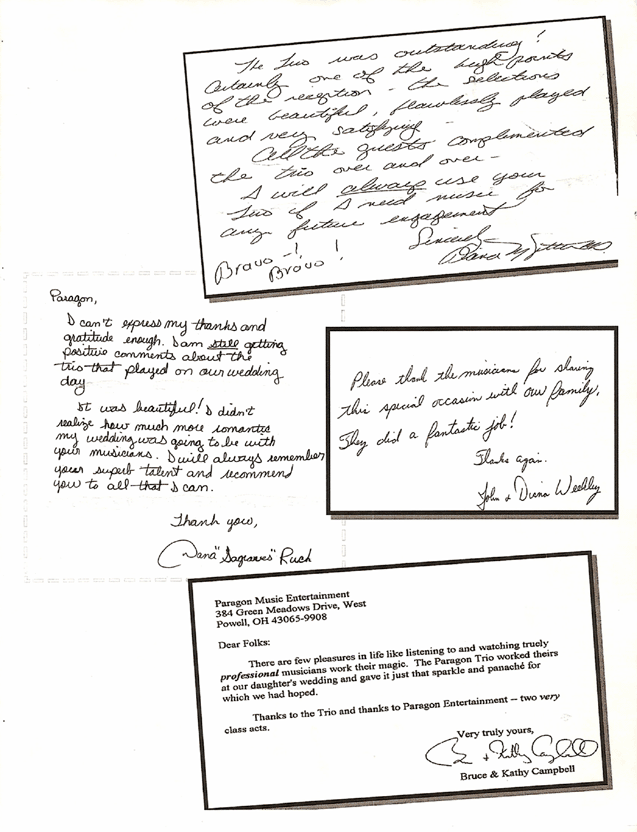 The Trio was outstanding!
Certainly one of the high points
of the reception - the selections
were beautiful, flawlessly played
and very satisfying -
All the guests complimented
the trio over and over -
I will always use your
Trio if I need music for
any future engagement
Sincerely
Bravo -!
Bravo!
Paragon,
I can't express my thanks and
gratitude enough. I am still getting
positive comments about the
trio that played on our wedding
day
It was beautiful! I didn't
realize how much more romantic
my wedding was going to be with
your musicians. I will always remember
your superb talent and recommend
you to all that I can.
Thank you,
Dana "Sagraves" Ruch
Please thank the musicians for sharing
this special occasion with our family.
They did a fantastic job!
Thanks again.
John + Diana Weekley
Paragon Music Entertainment
384 Green Meadows Drive, West
Powell, OH 43065-9908
Dear Folks:
There are few pleasures in life like listening to and watching truely
professional musicians work their magic. The Paragon Trio worked theirs
at our daughter's wedding and gave it just that sparkle and panaché for
which we had hoped.
Thanks to the Trio and thanks to Paragon Entertainment -- two very
class acts.
Very truly yours,
Bruce & Kathy Campbell